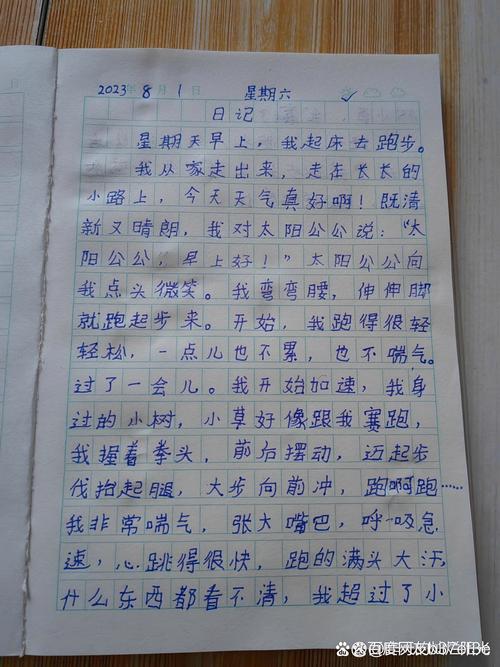 2023年8月1日 星期六
日记
星期天早上，我起床去跑步。
我从家走出来，走在长长的
小路上，今天天气真好啊！既清
新又晴朗，我对太阳公公说：“太
阳公公，早上好！”太阳公公向
我点头微笑。我弯弯腰，伸伸脚
就跑起步来。开始，我跑得很轻
轻松，一点儿也不累，也不喘气。
过了一会儿。我开始加速，我身
过的小树，小草好像跟我赛跑，
我握着拳头，前后摆动，迈起步
伐抬起腿，大步向前冲，跑啊跑……
我非常喘气，张大嘴巴，呼吸急
速，心跳得很快，跑的满头大汗，
什么东西都看不清，我超过了小